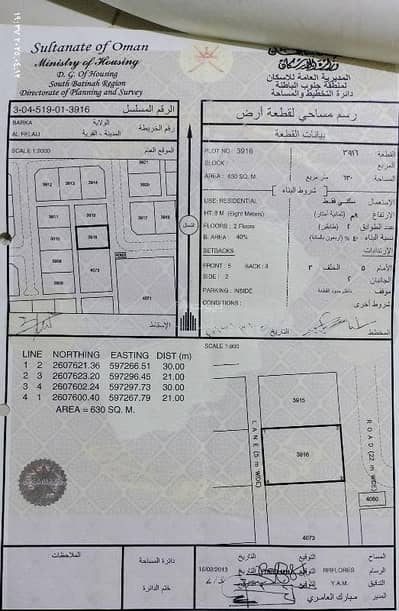 Sultanate of Oman
Ministry of Housing
D. G. Of Housing
South Batinah Region
Directorate of Planning and Survey
وزارة الإسكان
المديرية العامة للاسكان
لمنطقة جنوب الباطنة
دائرة التخطيط والمساحة
3-04-519-01-3916 الرقم المسلسل
BARKA الولاية
AL FELAIJ المدينة - القرية
رقم الخريطة
SCALE 1:2000 الموقع العام
3921
3912
3913
3914
3915
3916
4073
4071
الإسقاط
شمال
رسم مساحي لقطعة أرض
بيانات القطعة
PLOT NO: 3916 القطعة ٣٩١٦
BLOCK : المربع
AREA : 630 SQ. M. المساحة ٦٣٠ متر مربع
شروط البناء
USE: RESIDENTIAL الاستعمال سكني فقط
HT: 8 M (Eight Meters) الارتفاع ٨م (ثمانية أمتار)
FLOORS : 2 Floors عدد الطوابق ٢ (طابقين)
B. AREA : 40% نسبة البناء ٤٠٪ (أربعون بالمائة)
SETBACKS الإرتدادات
FRONT : 5 BACK : 3 الأمام ٥ الخلف ٣
SIDE : 2 الجانبان ٢
PARKING : INSIDE موقف داخل حدود القطعة
شروط أخرى
المخطط التوقيع التاريخ
SCALE 1:600
LINE NORTHING EASTING DIST (m)
1 2 2607621.36 597266.51 30.00
2 3 2607623.20 597296.45 21.00
3 4 2607602.24 597297.73 30.00
4 1 2607600.40 597267.79 21.00
AREA = 630 SQ. M.
3915
3916
4073
4060
LANE (5 m WIDE)
ROAD (22 m WIDE)
الملاحظات
دائرة المساحة
ختم الدائرة
المساح التوقيع التاريخ
الرسام RRFLORES التوقيع التاريخ 16/02/2013
التدقيق Y.A.M. التوقيع التاريخ
المدير مبارك العامري